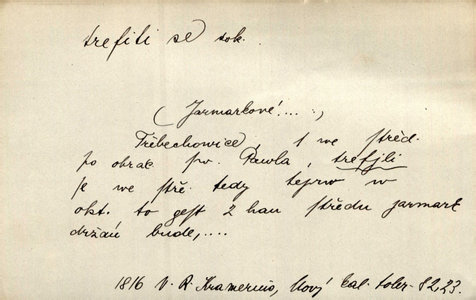 trefiti se dok.
(Jarmarkové:... :)
Třebechowice, 1 we střed.
po obrac. sw. Pawla, trefjli
se we stř. tedy teprw w
okt. to gest 2 hau středu jarmark
držán bude,....
1816 V. R. Kramerius, Nový kal. toler. 82,23.